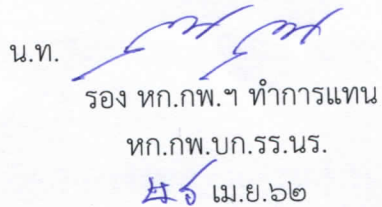 น.ท.
รอง หก.กพ.ฯ ทำการแทน
หก.กพ.บก.รร.นร.
เม.ย.๖๒